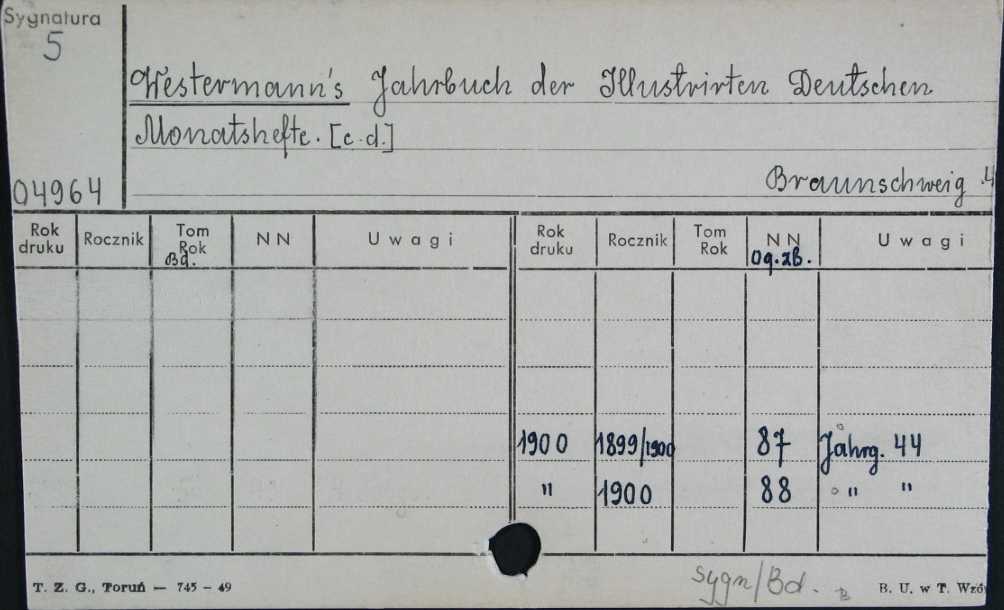 Sygnatura
5
Westermann's Jahrbuch der Illustrirten Deutschen
Monatshefte. [c.d.]
04964
Braunschweig 4
Rok druku Rocznik Tom Rok Bd. NN Uwagi Rok druku Rocznik Tom Rok NN Og.zb. Uwagi
1900 1899/1900 87 Jahrg. 44
" 1900 88 " "
T. Z. G., Toruń — 745 – 49
sygn/Bd.
B. U. w T. Wzó